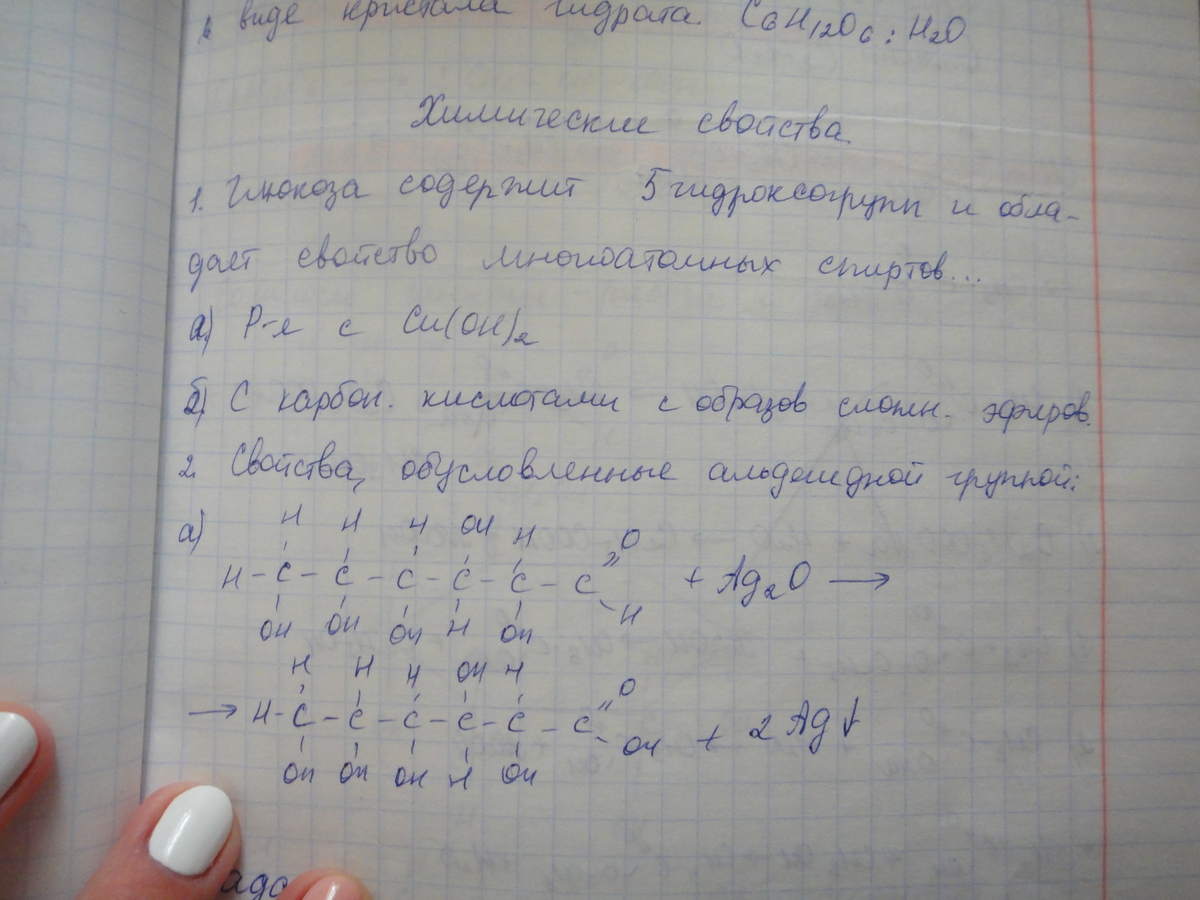 в виде кристала гидрата C6H12O6 : H2O
Химические свойства
1. Глюкоза содержит 5 гидроксогрупп и обла-
дает свойство многоатомных спиртов...
а) Р-я с Cu(OH)2
б) С карбон. кислотами с образов сложн. эфиров.
2. Свойства, обусловленные альдегидной группой:
а) H H H OH H
O
H - C - C - C - C - C - C + Ag2O →
H
OH OH OH H OH
H H H OH H
O
→ H - C - C - C - C - C - C + 2 Ag↓
OH
OH OH OH H OH